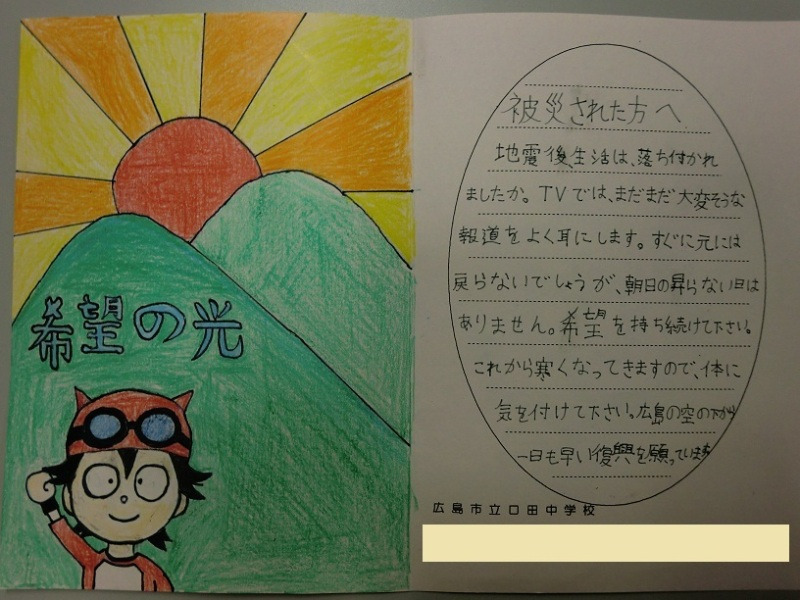 希望の光
被災された方へ
地震後生活は、落ち付かれ
ましたか。TVでは、まだまだ大変そうな
報道をよく耳にします。すぐに元には
戻らないでしょうが、朝日の昇らない日は
ありません。希望を持ち続けて下さい。
これから寒くなってきますので、体に
気を付けて下さい。広島の空の下から
一日も早い復興を願っています
広島市立口田中学校